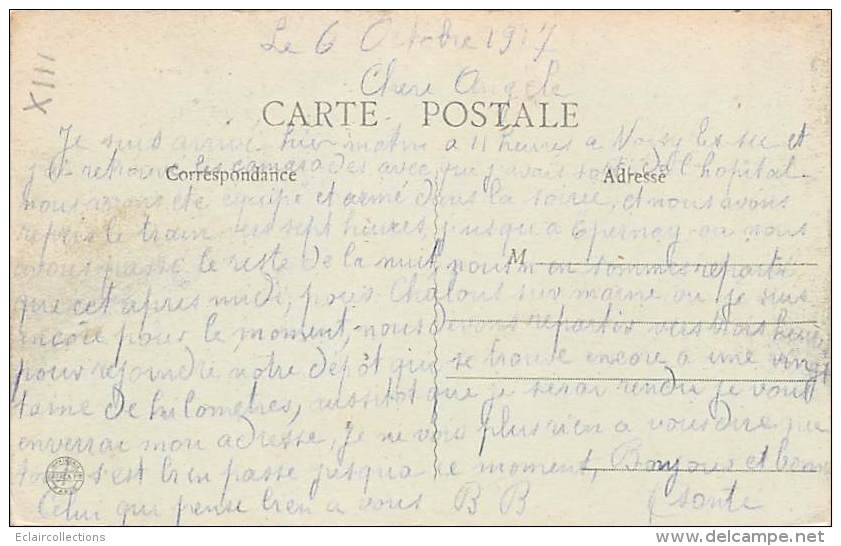 Le 6 Octobre 1917
XIII
Chere Angele
CARTE POSTALE
Je suis arrivé hier matin a 11 heures a Noisy le sec et
j'ai retrouvé les camarades avec que j'avais sorti de l'hopital
Correspondance
Adresse
nous avons été équipé et armé dans la soirée, et nous avons
repris le train vers sept heures jusqu'a Epernay ou nous
avons passé le reste de la nuit, nous n'en sommes repartis
M
que cet après midi, pour Chalons sur marne ou je suis
encore pour le moment, nous devons repartir vers trois heures
pour rejoindre notre dépôt qui se trouve encore a une vingt
taine de kilometres, aussitot que je serai rendu je vous
enverrai mon adresse, Je ne vois plus rien a vous dire que
tout s'est bien passé jusqua ce moment, Bonjour et bonne
Celui qui pense bien a vous B B (santé
Eclaircollections
www.delcampe.net